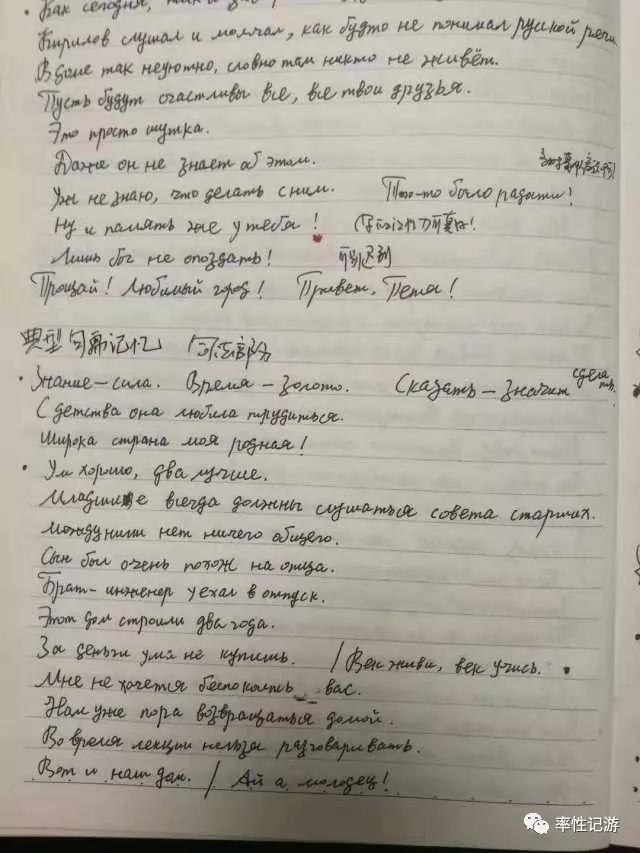 Как сегодня, так и
Кирилов слушал и молчал, как будто не понимал руской речи
В доме так неуютно, словно там никто не живёт.
Пусть будут счастливы все, все твои друзья.
Это просто шутка.
Даже он не знает об этом.
Уж не знаю, что делать с ним. То-то было радости!
Ну и память же у тебя! 你的记忆力可真好!
Лишь бы не опоздать! 可别迟到
Прощай! Любимый город! Привет, Петя!
典型句部记忆 句法部分
· Знание – сила. Время – золото. Сказать – значит сделать.
С детства она любила трудиться.
Широка страна моя родная!
· Ум хорошо, два лучше.
Младшие всегда должны слушаться совета старших.
Между ними нет ничего общего.
Сын был очень похож на отца.
Брат-инженер уехал в отпуск.
Этот дом строили два года.
За деньги ума не купишь. / Век живи, век учись.
Мне не хочется беспокоить вас.
Нам уже пора возвращаться домой.
Во время лекции нельзя разговаривать.
Вот и наш дом. / Ай да молодец!
率性记游